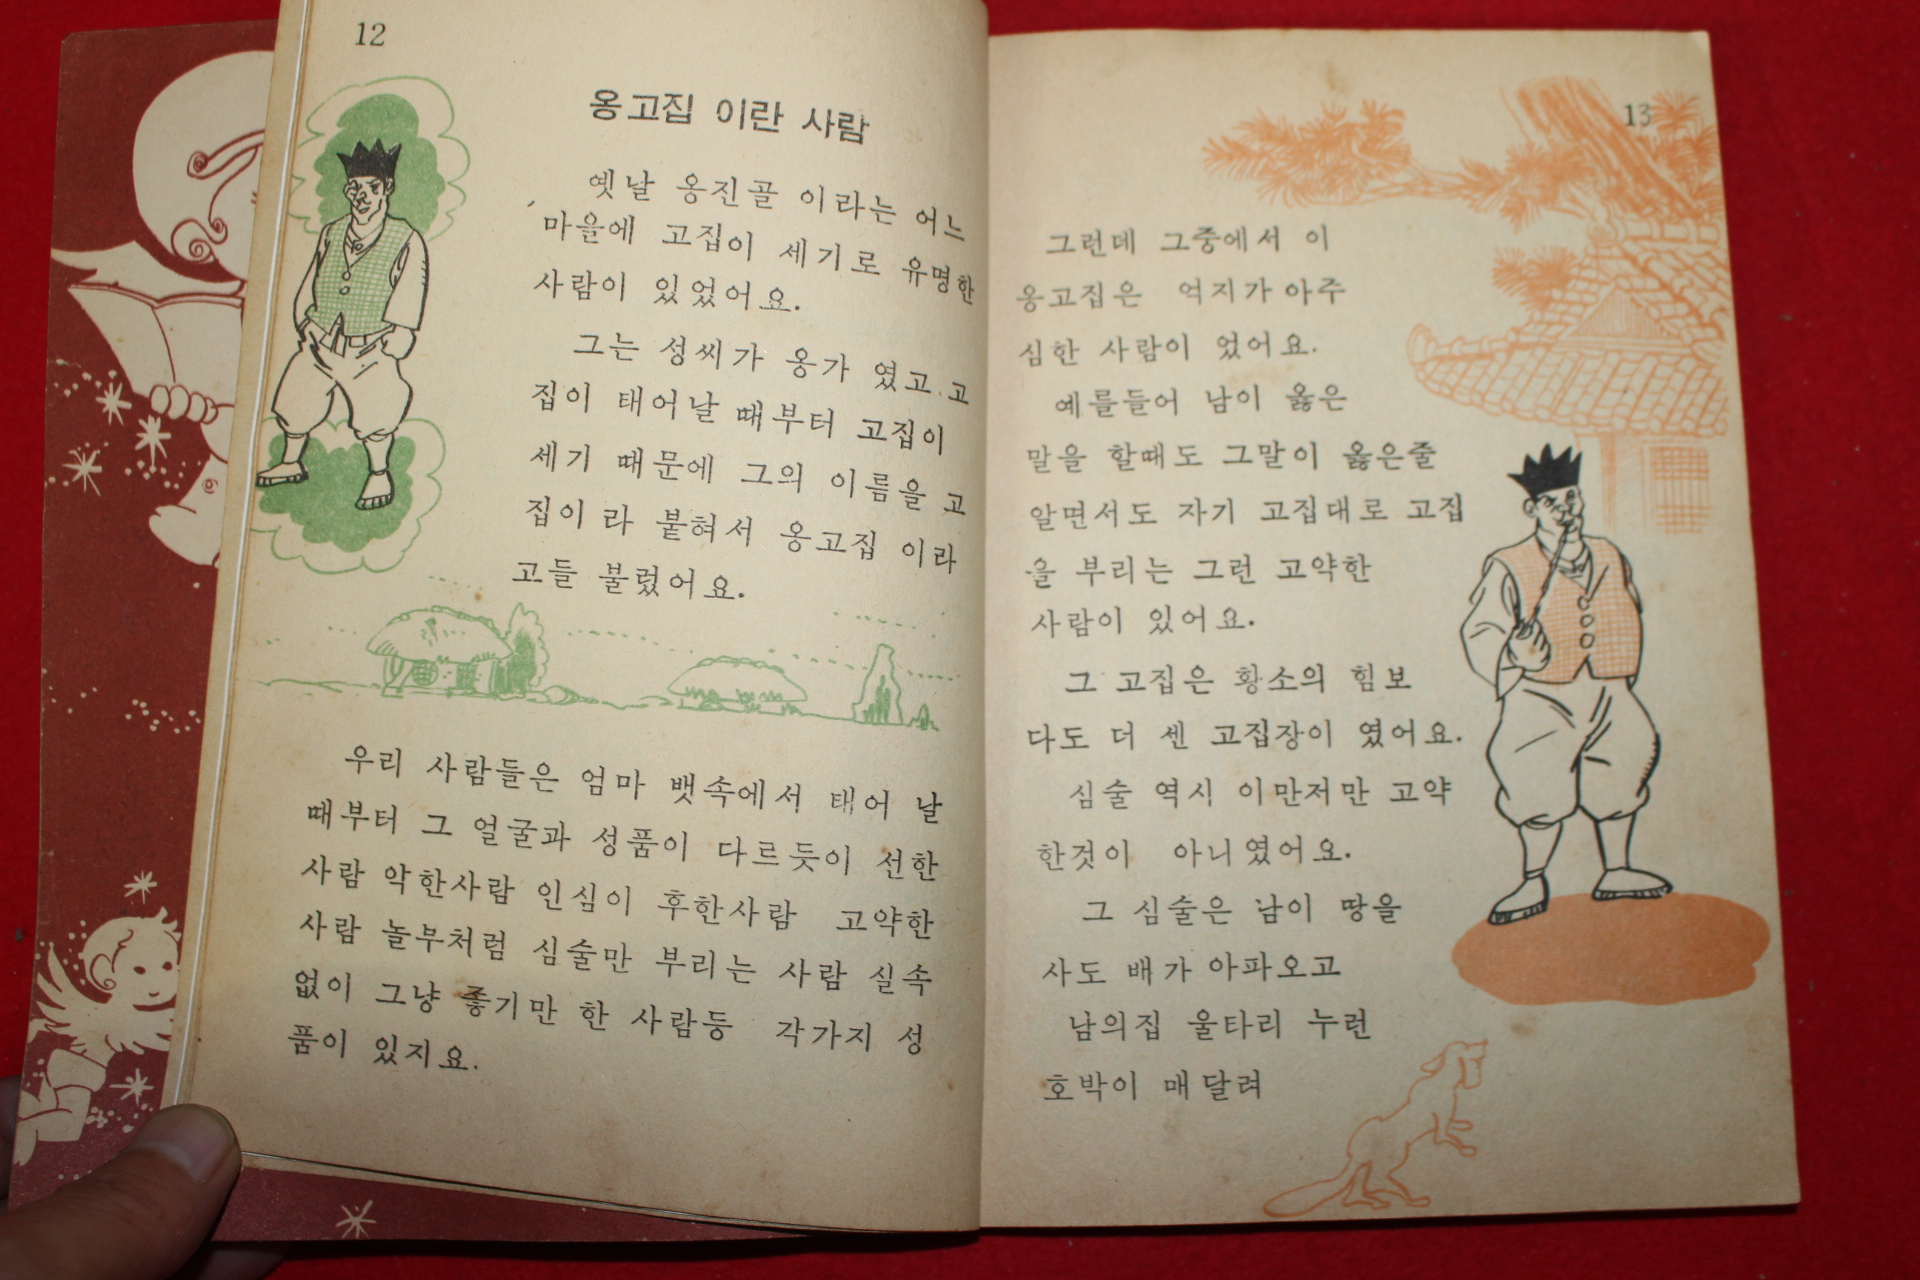 12
옹고집 이란 사람
옛날 옹진골 이라는 어느
마을에 고집이 세기로 유명한
사람이 있었어요.
그는 성씨가 옹가 였고 고
집이 태어날 때부터 고집이
세기 때문에 그의 이름을 고
집이 라 붙혀서 옹고집 이라
고들 불렀어요.
우리 사람들은 엄마 뱃속에서 태어 날
때부터 그 얼굴과 성품이 다르듯이 선한
사람 악한사람 인심이 후한사람 고약한
사람 놀부처럼 심술만 부리는 사람 실속
없이 그냥 좋기만 한 사람등 각가지 성
품이 있지요.
13
그런데 그중에서 이
옹고집은 억지가 아주
심한 사람이 었어요.
예를들어 남이 옳은
말을 할때도 그말이 옳은줄
알면서도 자기 고집대로 고집
을 부리는 그런 고약한
사람이 있어요.
그 고집은 황소의 힘 보
다도 더 센 고집장이 였어요.
심술 역시 이만저만 고약
한것이 아니였어요.
그 심술은 남이 땅을
사도 배가 아파오고
남의집 울타리 누런
호박이 매달려